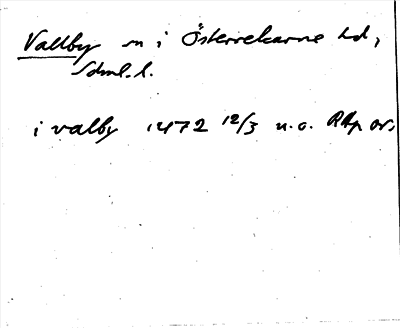 Vallby sn i Österrekarne hd,
Sdml. l.
i valby 1472 12/3 n.o. RAp or.